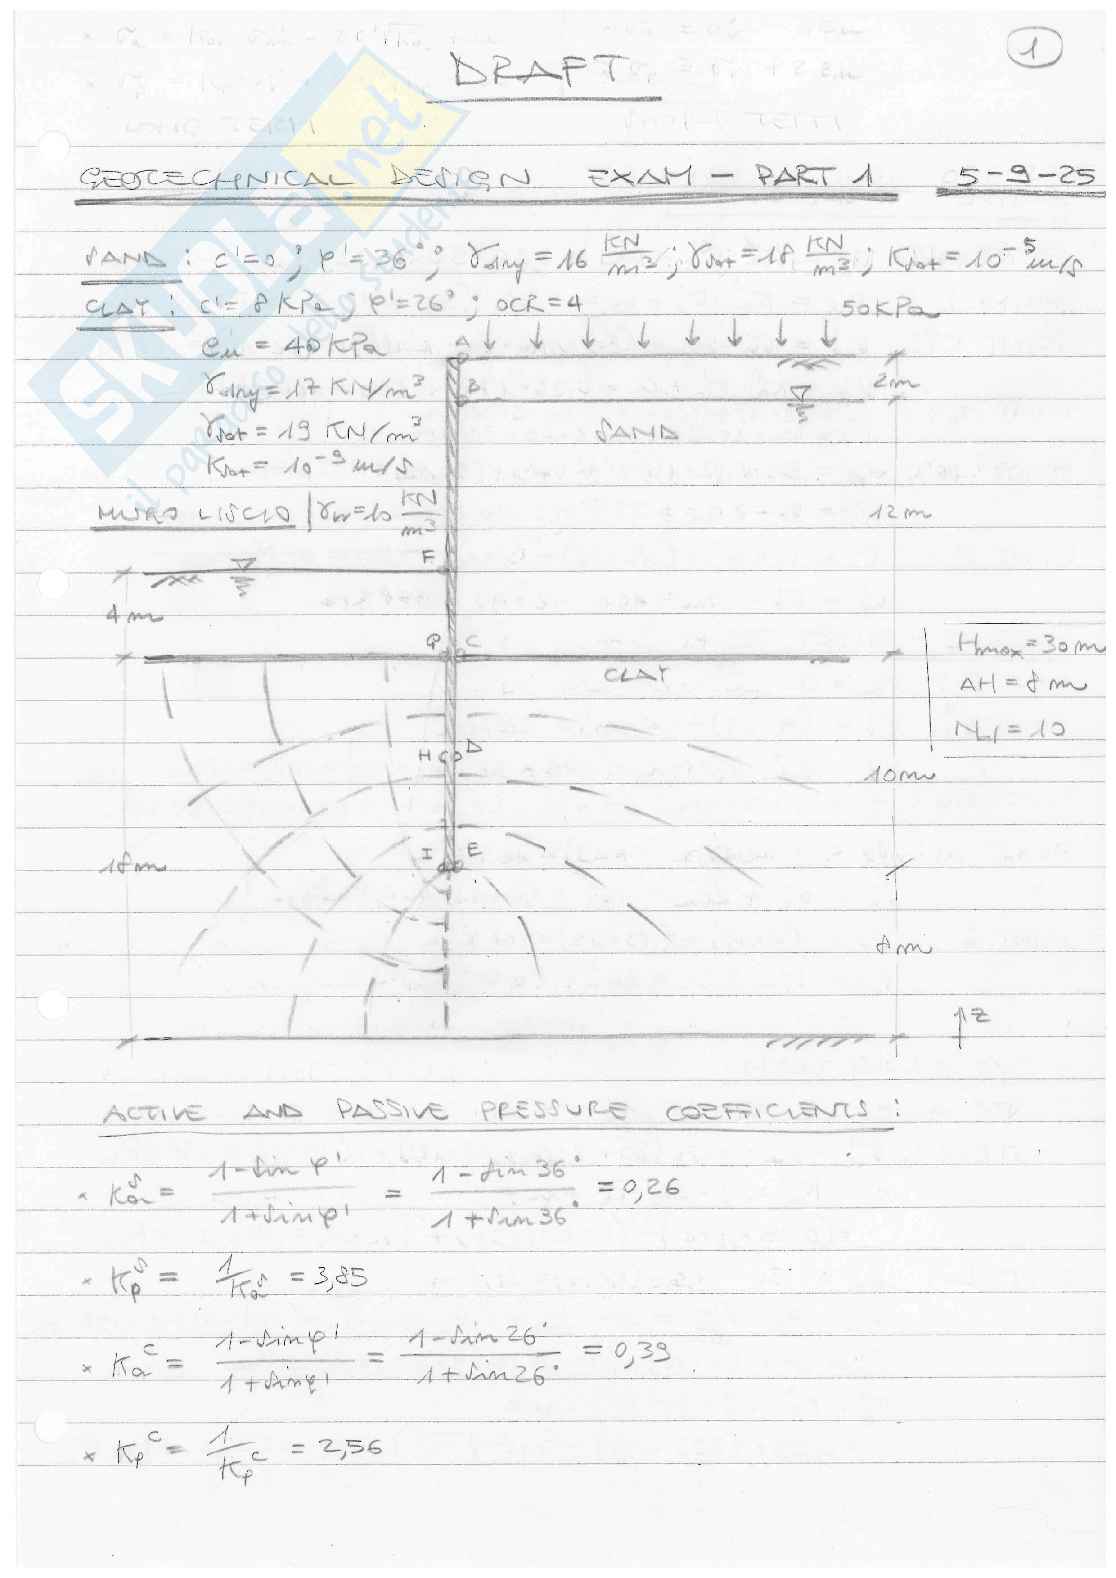 1
DRAFT
GEOTECHNICAL DESIGN EXAM - PART 1 5-9-25
SAND : c'=0 ; φ'=36° ; γdry = 16 KN/m³ ; γsat = 18 KN/m³ ; Ksat = 10⁻⁵ m/s
CLAY : c'= 8 KPa ; φ'=26° ; OCR=4
50KPa
cu = 40 KPa
γdry = 17 KN/m³
γsat = 19 KN/m³
Ksat = 10⁻⁹ m/s
MURO LISCIO | γw=10 KN/m³
A
2m
B
SAND
12m
F
4m
C
CLAY
Hmax = 30m
ΔH = 8 m
10m
H D
18m
I E
8m
z
ACTIVE AND PASSIVE PRESSURE COEFFICIENTS :
× Ka^S = (1-sin φ')/(1+sin φ') = (1-sin 36°)/(1+sin 36°) = 0,26
× Kp^S = 1/Ka^S = 3,85
× Ka^C = (1-sin φ')/(1+sin φ') = (1-sin 26°)/(1+sin 26°) = 0,39
× Kp^C = 1/Kp^C = 2,56
skuola.net